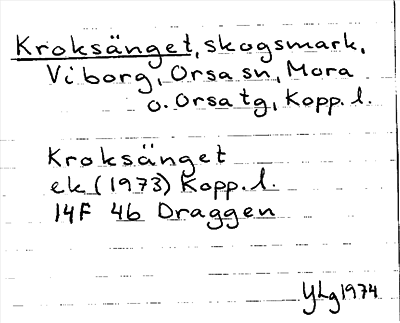 Kroksänget, skogsmark,
Viborg, Orsa sn, Mora
o. Orsa tg, Kopp. l.
Kroksänget
ek (1973) Kopp. l.
14F 4b Draggen
YLg 1974